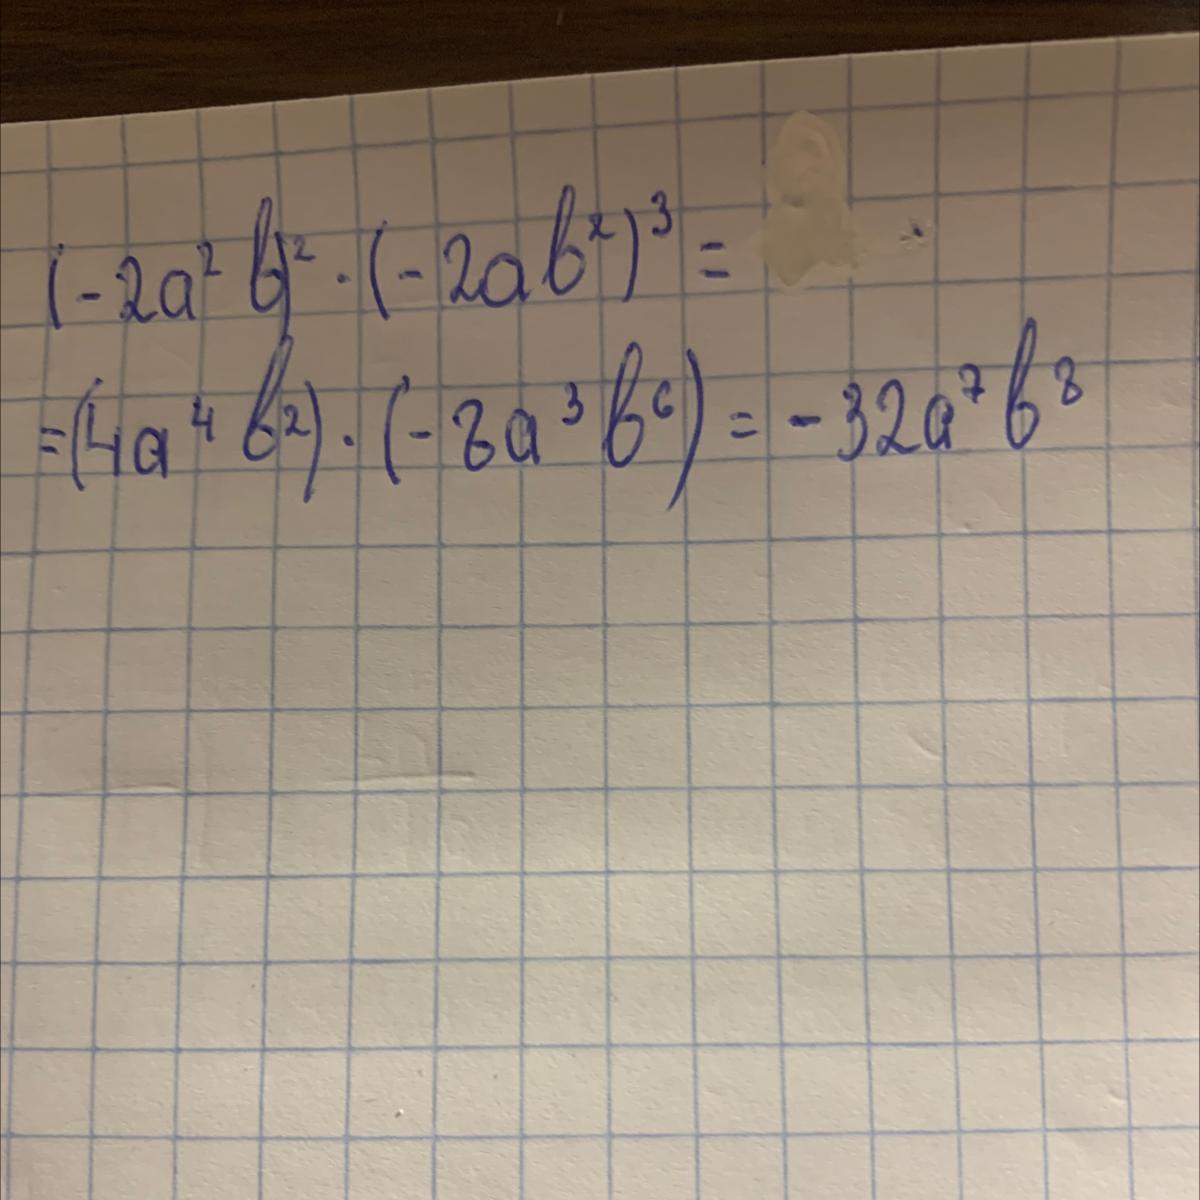 (-2a² b)² · (-2ab²)³ =
=(4a⁴ b²) · (-8a³ b⁶) = -32a⁷ b⁸